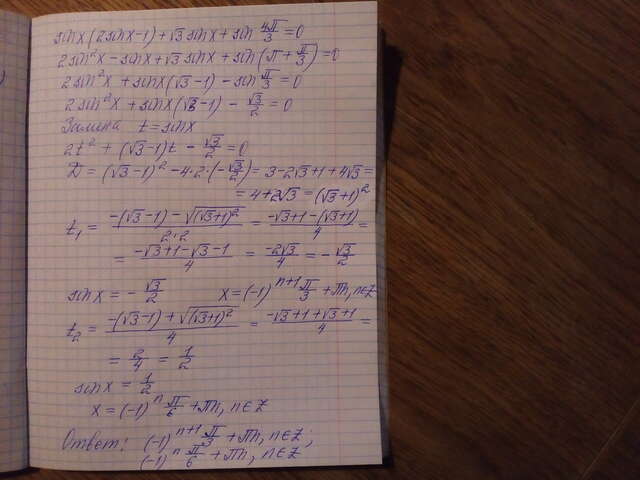 sin x (2 sin x - 1) + √3 sin x + sin 4π/3 = 0
2 sin² x - sin x + √3 sin x + sin (π + π/3) = 0
2 sin² x + sin x (√3 - 1) - sin π/3 = 0
2 sin² x + sin x (√3 - 1) - √3/2 = 0
Замена t = sin x
2t² + (√3 - 1)t - √3/2 = 0
D = (√3 - 1)² - 4·2·(-√3/2) = 3 - 2√3 + 1 + 4√3 =
= 4 + 2√3 = (√3 + 1)²
t₁ = (-(√3 - 1) - √(√3 + 1)²)/(2·2) = (-√3 + 1 - (√3 + 1))/4 =
= (-√3 + 1 - √3 - 1)/4 = -2√3/4 = -√3/2
sin x = -√3/2 x = (-1)ⁿ⁺¹ π/3 + πn, n∈Z
t₂ = (-(√3 - 1) + √(√3 + 1)²)/4 = (-√3 + 1 + √3 + 1)/4 =
= 2/4 = 1/2
sin x = 1/2
x = (-1)ⁿ π/6 + πn, n∈Z
Ответ: (-1)ⁿ⁺¹ π/3 + πn, n∈Z;
(-1)ⁿ π/6 + πn, n∈Z